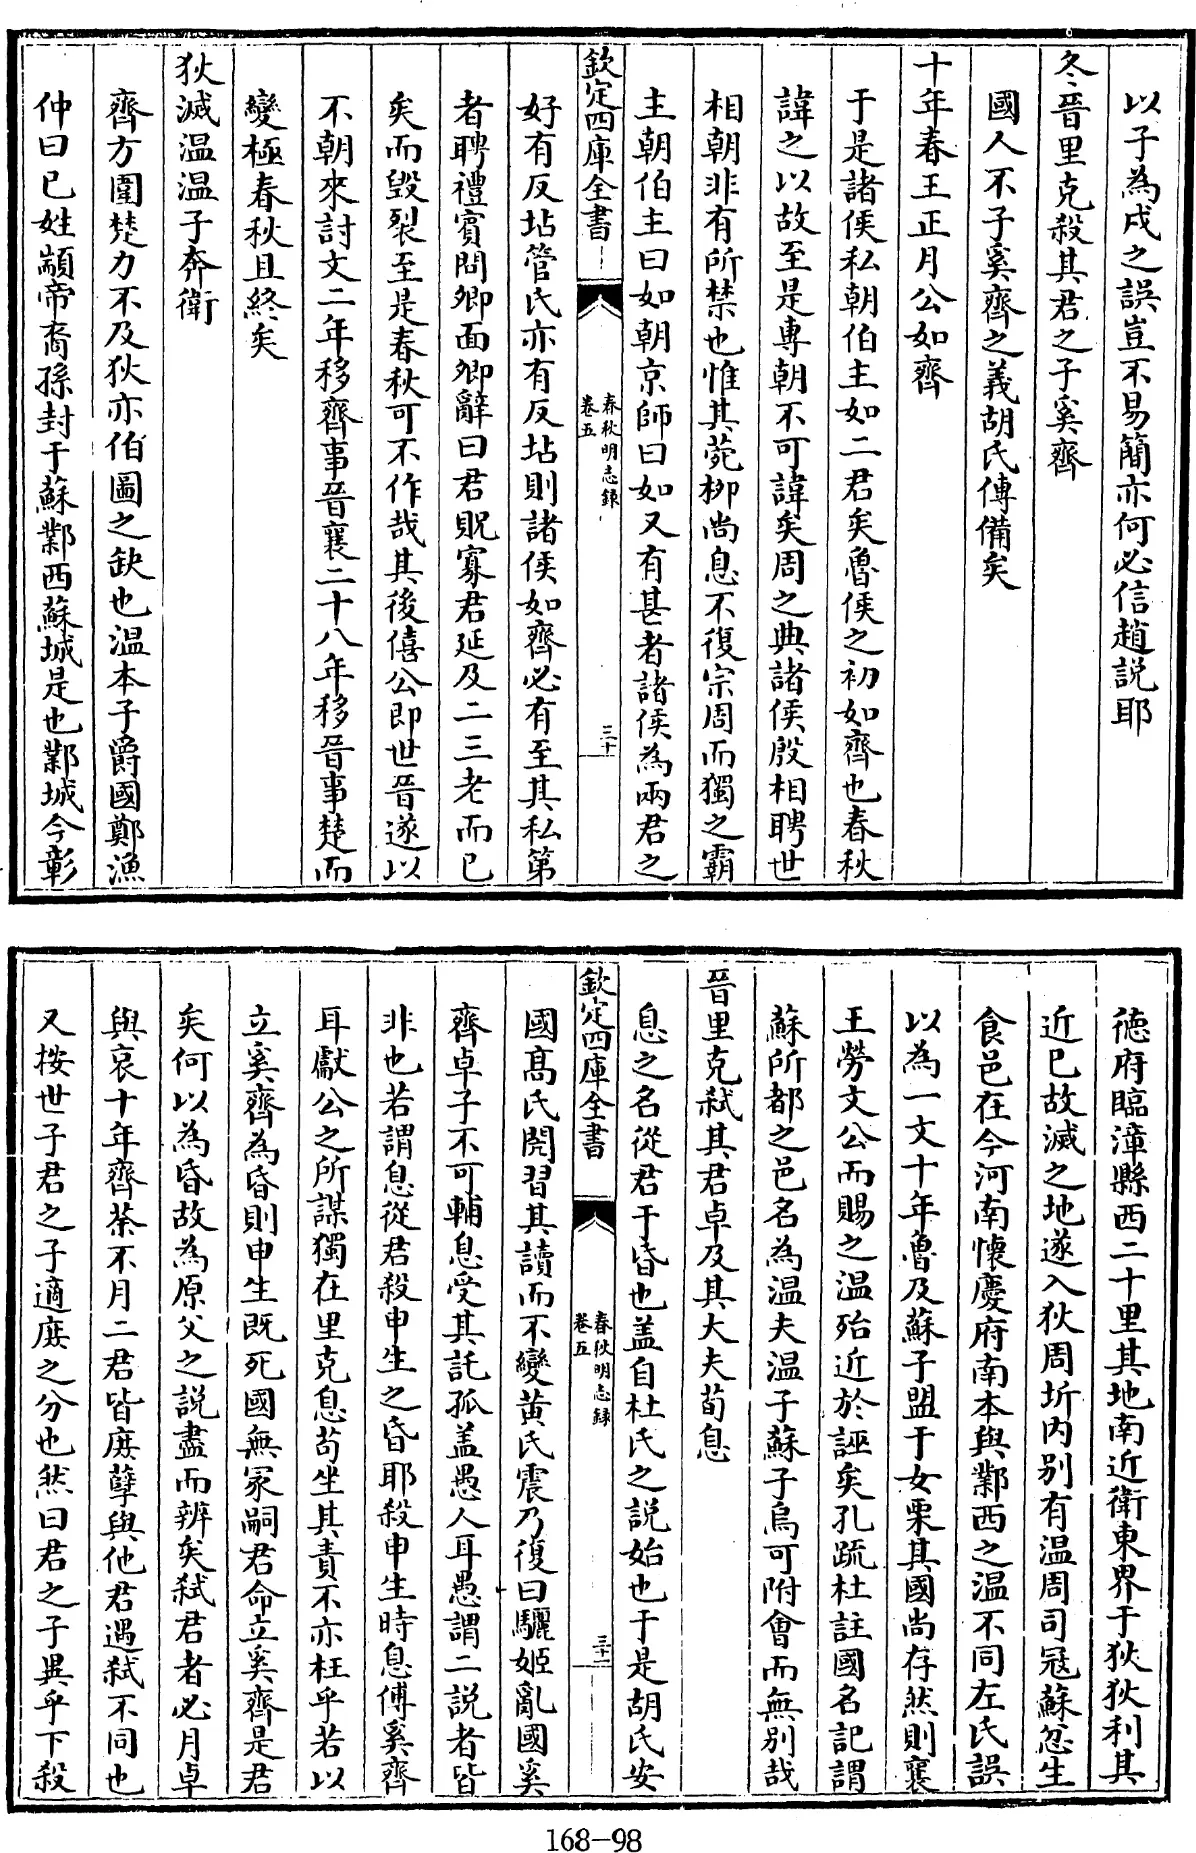 以子為戌之誤豈不易簡亦何必信趙説耶
冬晉里克殺其君之子奚齊
國人不子奚齊之義胡氏傳備矣
十年春王正月公如齊
于是諸侯私朝伯主如二君矣魯侯之初如齊也春秋
諱之以故至是專朝不可諱矣周之典諸侯殷相聘世
相朝非有所禁也惟其菀柳尚息不復宗周而獨之霸
主朝伯主曰如朝京師曰如又有甚者諸侯為兩君之
欽定四庫全書
春秋明志錄
卷五
三十
好有反坫管氏亦有反坫則諸侯如齊必有至其私第
者聘禮賓問卿面卿辭曰君貺寡君延及二三老而已
矣而毀裂至是春秋可不作哉其後僖公即世晉遂以
不朝來討文二年移齊事晉襄二十八年移晉事楚而
變極春秋且終矣
狄滅温温子奔衛
齊方圍楚力不及狄亦伯圖之缺也温本子爵國鄭漁
仲曰已姓顓帝裔孫封于蘇鄴西蘇城是也鄴城今彰
德府臨漳縣西二十里其地南近衛東界于狄狄利其
近已故滅之地遂入狄周圻内别有温周司冦蘇忿生
食邑在今河南懷慶府南本與鄴西之温不同左氏誤
以為一文十年魯及蘇子盟于女栗其國尚存然則襄
王勞文公而賜之温殆近於誣矣孔疏杜註國名記謂
蘇所都之邑名為温夫温子蘇子烏可附會而無别哉
晉里克弑其君卓及其大夫荀息
息之名從君于昏也盖自杜氏之説始也于是胡氏安
欽定四庫全書
春秋明志錄
卷五
三十一
國髙氏閌習其讀而不變黄氏震乃復曰驪姬亂國奚
齊卓子不可輔息受其託孤盖愚人耳愚謂二説者皆
非也若謂息從君殺申生之昏耶殺申生時息傅奚齊
耳獻公之所謀獨在里克息茍坐其責不亦枉乎若以
立奚齊為昏則申生既死國無冢嗣君命立奚齊是君
矣何以為昏故為原父之説盡而辨矣弑君者必月卓
與哀十年齊荼不月二君皆庻孽與他君遇弑不同也
又按世子君之子適庻之分也然曰君之子異乎下殺
168-98